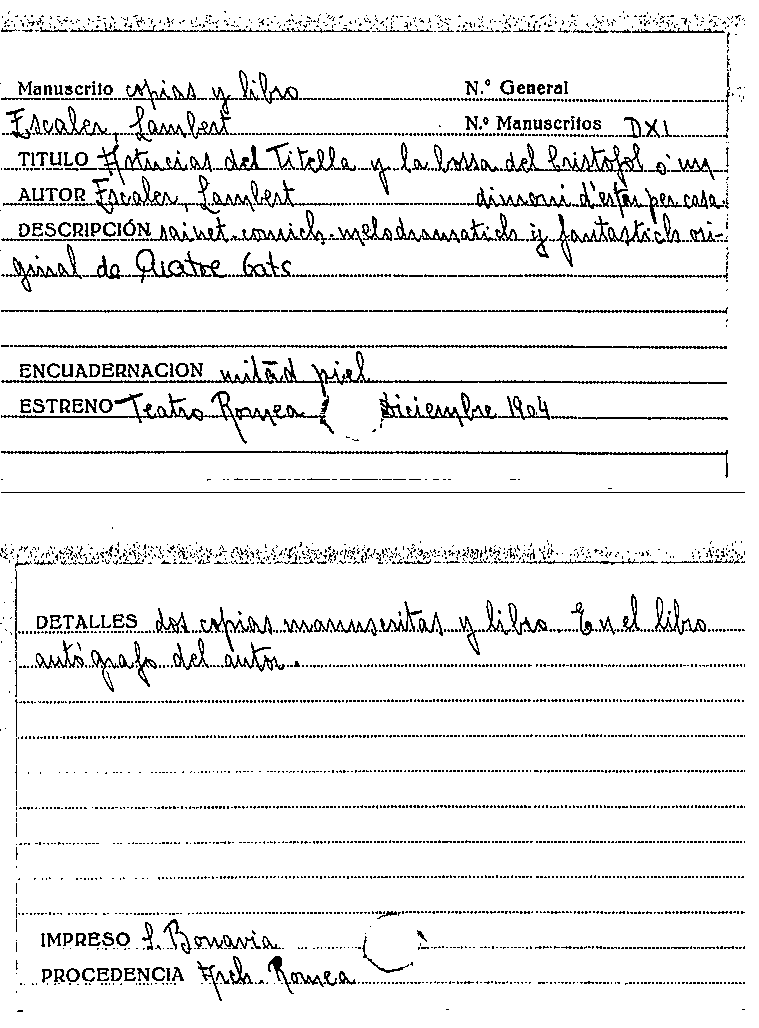 Manuscrito copias y libro N.º General
Escaler, Lambert N.º Manuscritos DXI
TITULO Astucias del Titella y la bossa del Cristofol ó un
AUTOR Escaler, Lambert dimoni d'estar per casa
DESCRIPCIÓN sainet-comich-melodramatich y fantastich ori-
ginal de Quatre Gats
ENCUADERNACION mitad piel
ESTRENO Teatro Romea Diciembre 1904
DETALLES dos copias manuscritas y libro. En el libro
autógrafo del autor.
IMPRESO S. Bonavia
PROCEDENCIA Arch. Romea